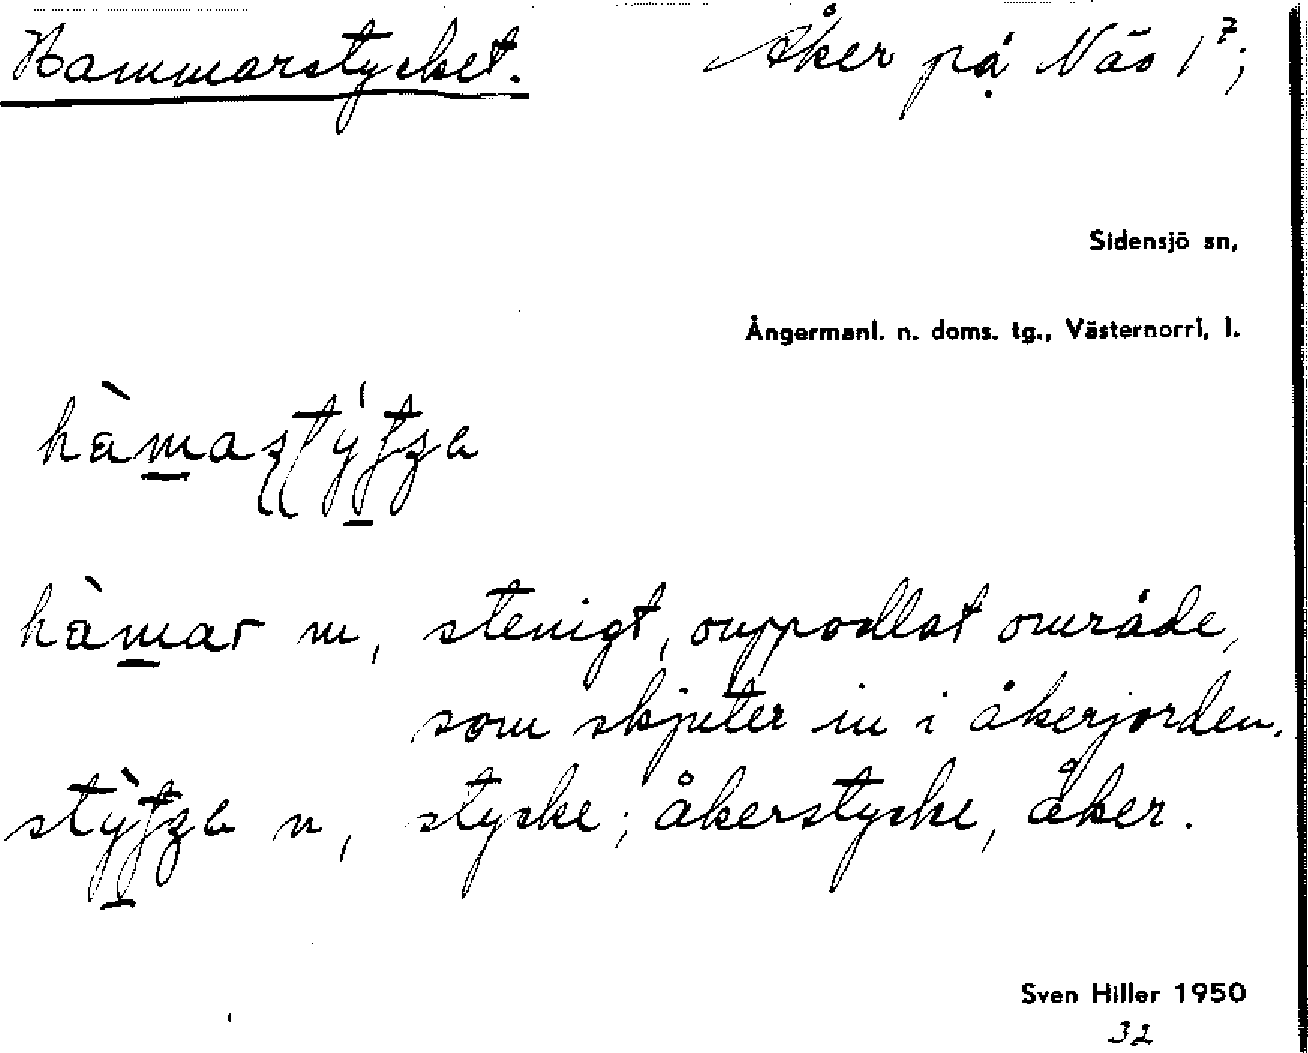 Hammarstycket. Åker på Näs 1⁷;
Sidensjö sn,
Ångermanl. n. doms. tg., Västernorrl. l.
hàmar m, stenigt, ouppodlat område,
som skjuter in i åkerjorden.
n, stycke; åkerstycke, åker.
Sven Hiller 1950
32